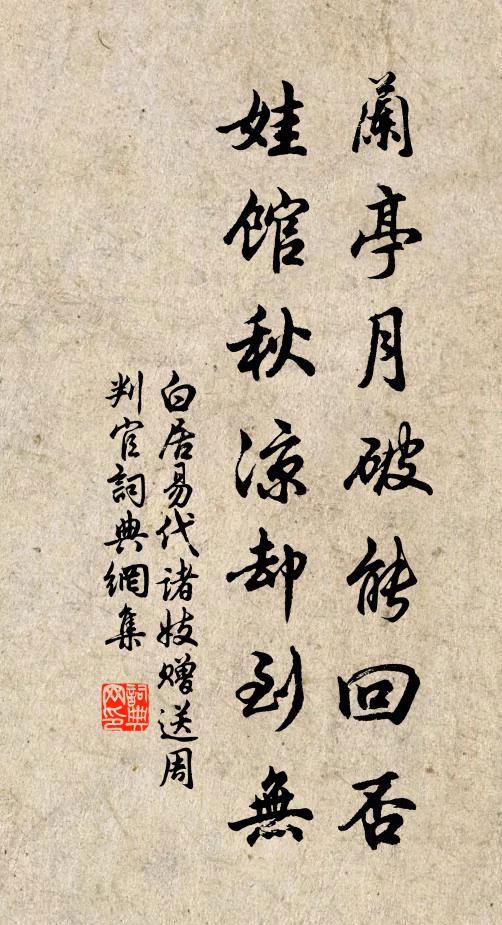 蘭亭月破能回否
娃館秋涼却到無
白居易代诸妓赠送周
判官詞典網集
詞典
网印